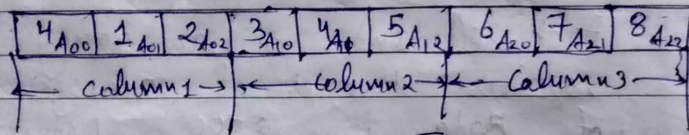 4A00 1A01 2A02 3A10 4A11 5A12 6A20 7A21 8A22
column1 column2 Column3